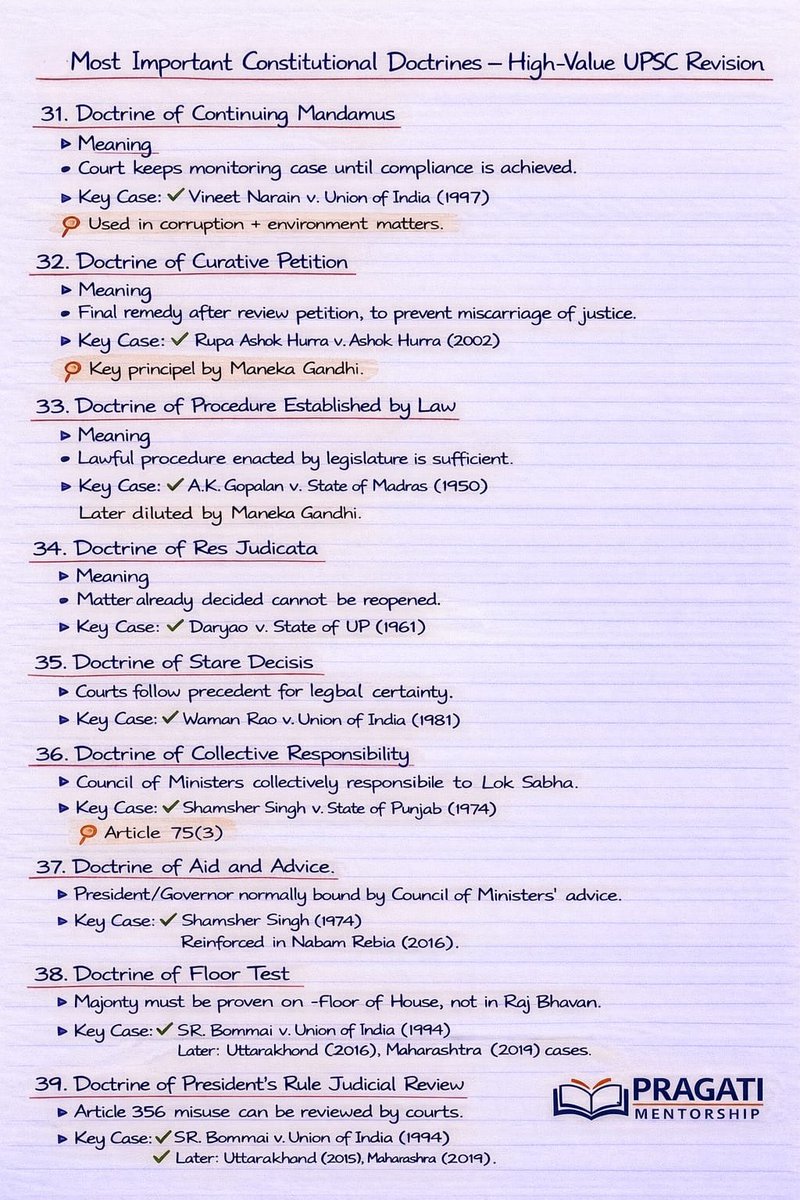 Most Important Constitutional Doctrines – High-Value UPSC Revision
31. Doctrine of Continuing Mandamus
Meaning
• Court keeps monitoring case until compliance is achieved.
Key Case: ✓ Vineet Narain v. Union of India (1997)
Used in corruption + environment matters.
32. Doctrine of Curative Petition
Meaning
• Final remedy after review petition, to prevent miscarriage of justice.
Key Case: ✓ Rupa Ashok Hurra v. Ashok Hurra (2002)
Key principel by Maneka Gandhi.
33. Doctrine of Procedure Established by Law
Meaning
• Lawful procedure enacted by legislature is sufficient.
Key Case: ✓ A.K. Gopalan v. State of Madras (1950)
Later diluted by Maneka Gandhi.
34. Doctrine of Res Judicata
Meaning
• Matter already decided cannot be reopened.
Key Case: ✓ Daryao v. State of UP (1961)
35. Doctrine of Stare Decisis
Courts follow precedent for legbal certainty.
Key Case: ✓ Waman Rao v. Union of India (1981)
36. Doctrine of Collective Responsibility
Council of Ministers collectively responsibile to Lok Sabha.
Key Case: ✓ Shamsher Singh v. State of Punjab (1974)
Article 75(3)
37. Doctrine of Aid and Advice.
President/Governor normally bound by Council of Ministers' advice.
Key Case: ✓ Shamsher Singh (1974)
Reinforced in Nabam Rebia (2016).
38. Doctrine of Floor Test
Majonty must be proven on -floor of House, not in Raj Bhavan.
Key Case: ✓ SR. Bommai v. Union of India (1994)
Later: Uttarakhond (2016), Maharashtra (2019) cases.
39. Doctrine of President's Rule Judicial Review
Article 356 misuse can be reviewed by courts.
Key Case: ✓ SR. Bommai v. Union of India (1994)
✓ Later: Uttarakhond (2015), Maharashra (2019).
PRAGATI
MENTORSHIP